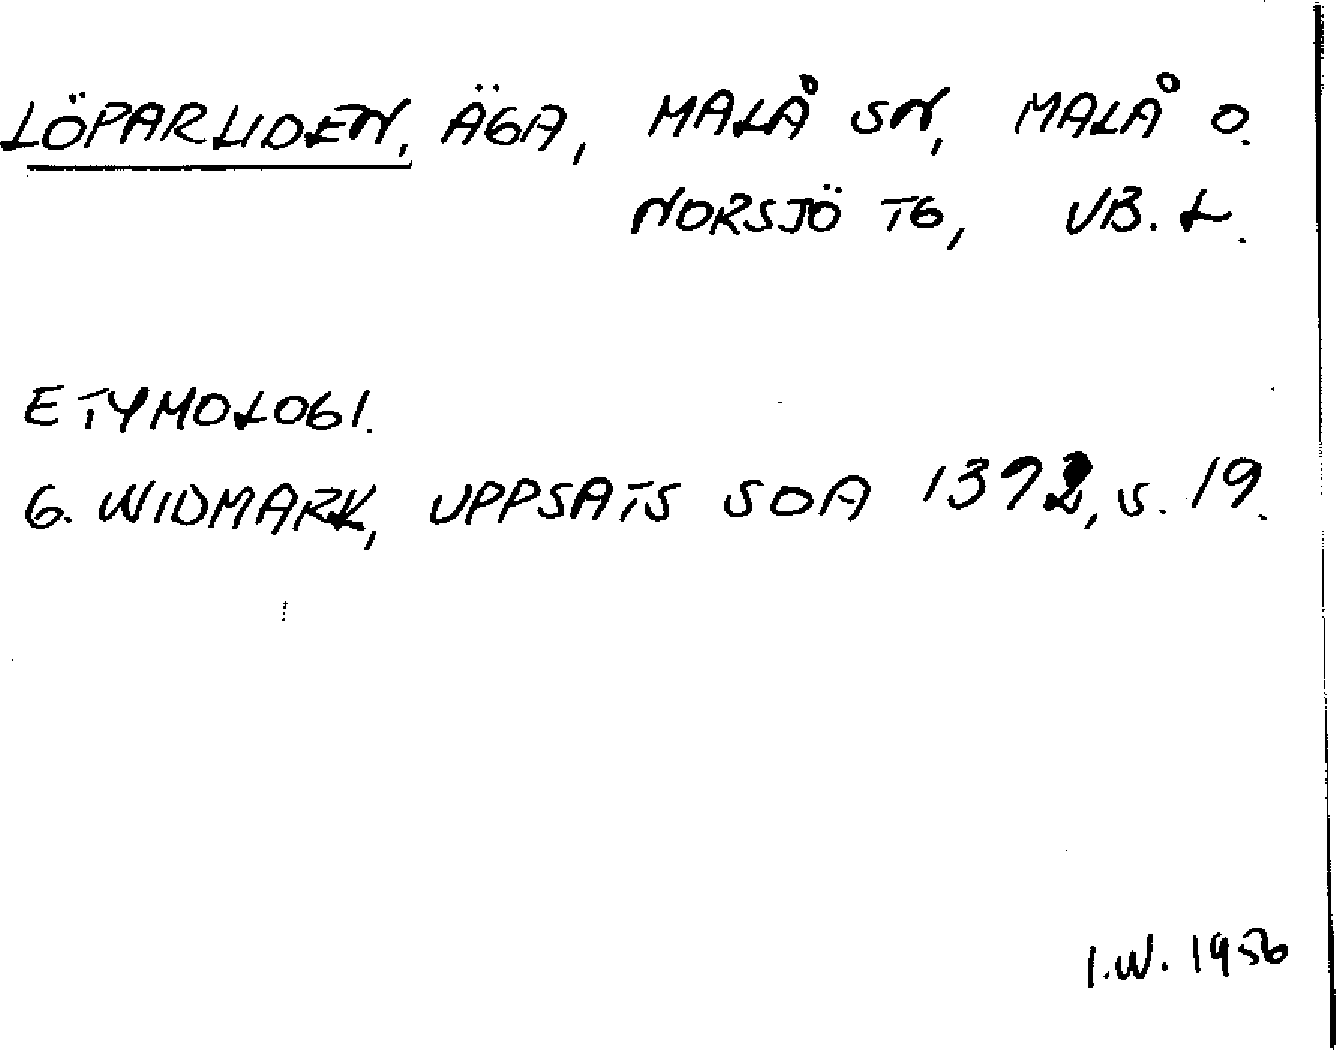 LÖPARLIDEN, ÄGA, MALÅ SN, MALÅ O.
NORSJÖ TG, VB. L.
ETYMOLOGI.
G. WIDMARK, UPPSATS SOA 1372, S. 19.
I.W. 1956